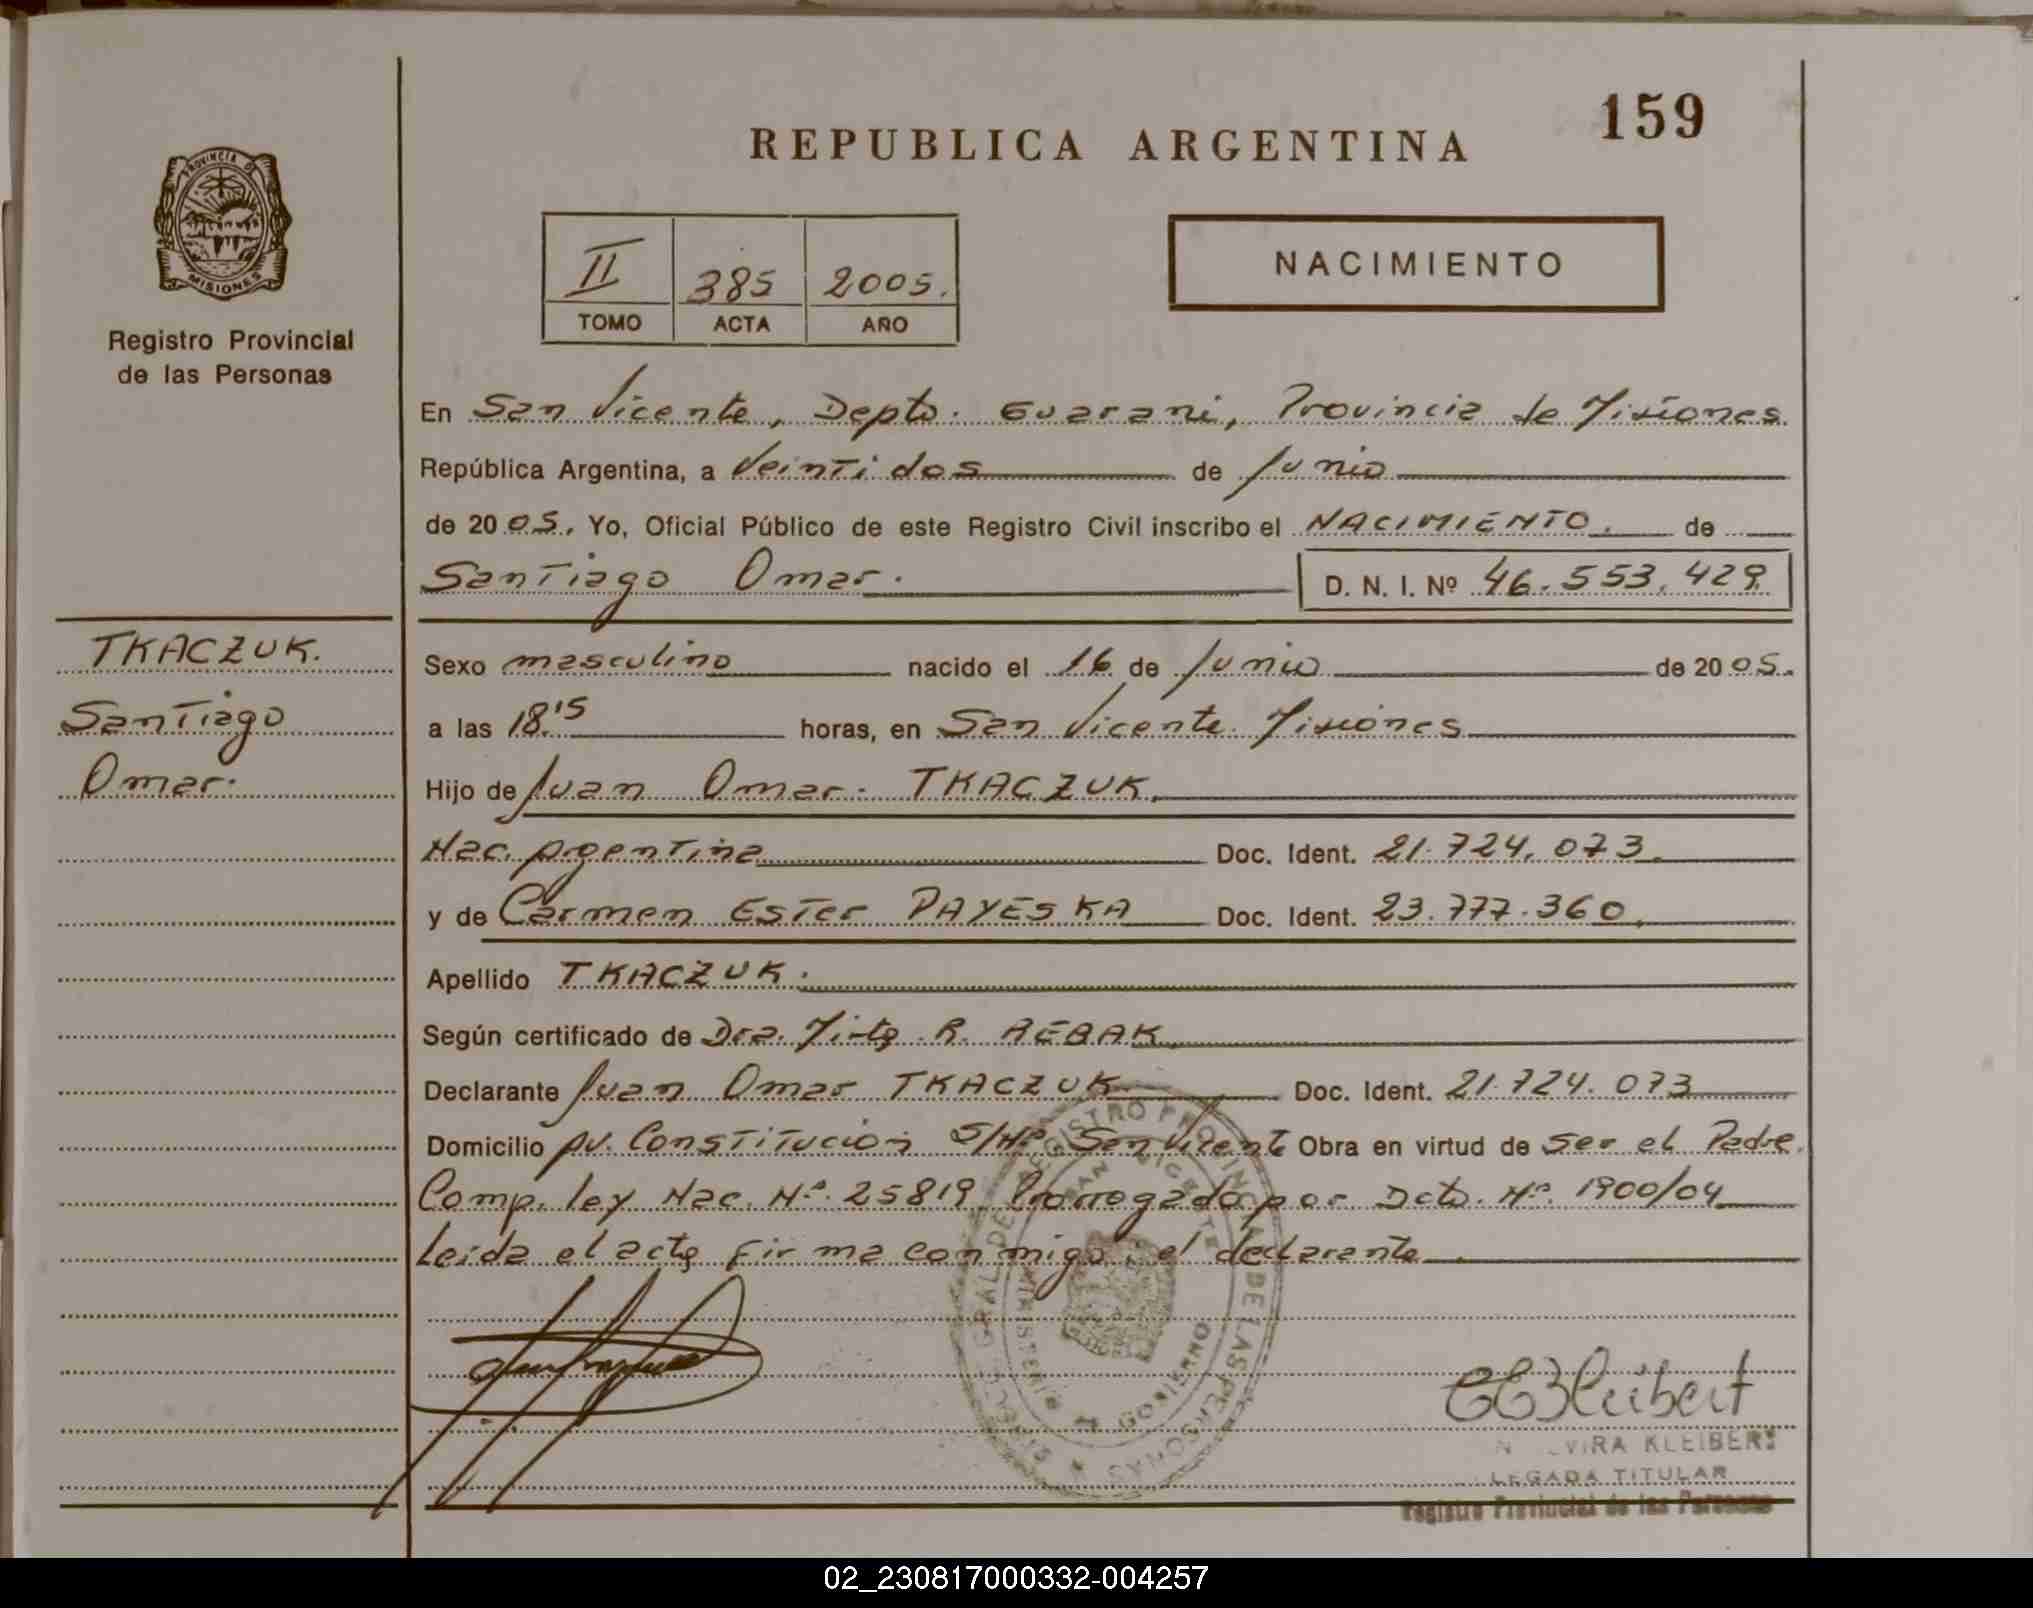 159
REPUBLICA ARGENTINA
PROVINCIA DE
MISIONES
Registro Provincial
de las Personas
II 385 2005.
TOMO ACTA AÑO
NACIMIENTO
En San Vicente, Depto. Guarani, Provincia de Misiones.
República Argentina, a Veintidos de Junio
de 2005. Yo, Oficial Público de este Registro Civil inscribo el NACIMIENTO. de
Santiago Omar. D. N. I. Nº 46.553.429.
TKACZUK.
Santiago
Omar.
Sexo masculino nacido el 16 de Junio de 2005.
a las 18.15 horas, en San Vicente. Misiones
Hijo de Juan Omar. TKACZUK.
Nac. Argentina Doc. Ident. 21.724.073.
y de Carmen Ester PAYESKA Doc. Ident. 23.777.360.
Apellido TKACZUK.
Según certificado de Dra. Mirta R. REBAK
Declarante Juan Omar TKACZUK Doc. Ident. 21.724.073
Domicilio Av. Constitucion S/Nº San Vicente Obra en virtud de Ser el Padre.
Comp. ley Nac. Nº. 25819 Prorrogada por Dcto. Nº. 1900/04
Leida el acta firma conmigo, el declarante.
REGISTRO PROVINCIAL DE LAS PERSONAS
SAN VICENTE
MINISTERIO GOBIERNO
Kleibert
VIRA KLEIBERT
LEGADA TITULAR
Registro Provincial de las Personas
02_230817000332-004257